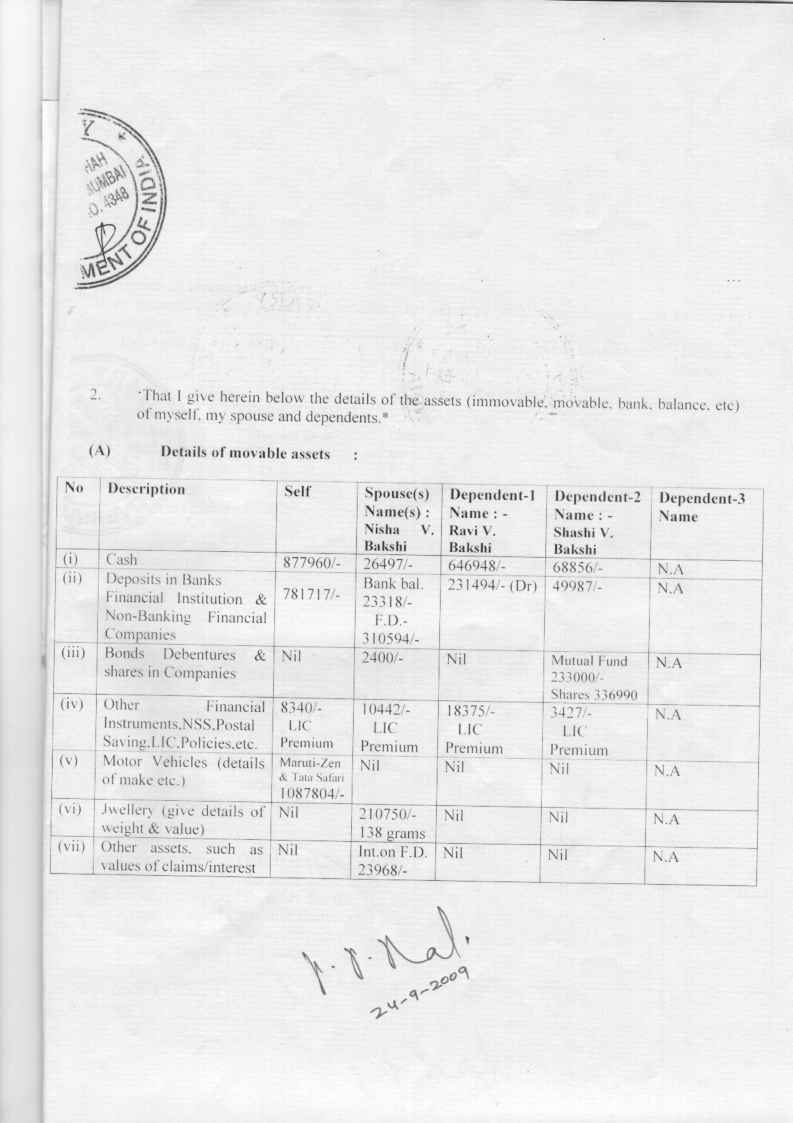 Y *
HAH
MUMBAI
O. 4348
MENT OF INDIA
2. 'That I give herein below the details of the assets (immovable, movable, bank, balance, etc)
of myself, my spouse and dependents.*
(A) Details of movable assets :
No Description Self Spouse(s) Dependent-1 Dependent-2 Dependent-3
Name(s) : Name : - Name : - Name
Nisha V. Ravi V. Shashi V.
Bakshi Bakshi Bakshi
(i) Cash 877960/- 26497/- 646948/- 68856/- N.A
(ii) Deposits in Banks 781717/- Bank bal. 231494/- (Dr) 49987/- N.A
Financial Institution & 23318/-
Non-Banking Financial F.D.-
Companies 310594/-
(iii) Bonds Debentures & Nil 2400/- Nil Mutual Fund N.A
shares in Companies 233000/-
Shares 336990
(iv) Other Financial 8340/- 10442/- 18375/- 3427/- N.A
Instruments,NSS,Postal LIC LIC LIC LIC
Saving,LIC,Policies,etc. Premium Premium Premium Premium
(v) Motor Vehicles (details Maruti-Zen Nil Nil Nil N.A
of make etc.) & Tata Safari
1087804/-
(vi) Jwellery (give details of Nil 210750/- Nil Nil N.A
weight & value) 138 grams
(vii) Other assets, such as Nil Int.on F.D. Nil Nil N.A
values of claims/interest 23968/-
24-9-2009